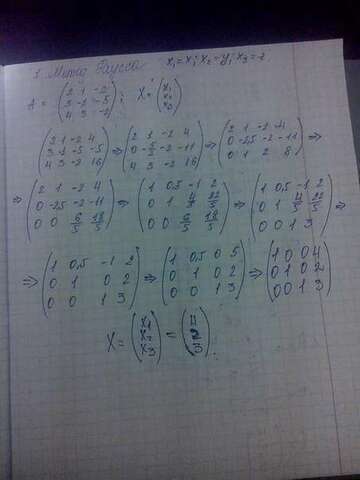 1. Метод Гаусса x₁=x; x₂=y; x₃=z
A = (2 1 -2; 3 -2 -5; 4 3 -2); X = (x₁; x₂; x₃)
(2 1 -2 4; 3 -2 -5 -5; 4 3 -2 16) ⇒ (2 1 -2 4; 0 -2 -11; 4 3 -2 16) ⇒ (2 1 -2 4; 0 -2,5 -2 -11; 0 1 2 8) ⇒
⇒ (2 1 -2 4; 0 -2,5 -2 -11; 0 0 6/5 18/5) ⇒ (1 0,5 -1 2; 0 1 4/5 22/5; 0 0 6/5 18/5) ⇒ (1 0,5 -1 2; 0 1 4/5 22/5; 0 0 1 3) ⇒
⇒ (1 0,5 -1 2; 0 1 0 2; 0 0 1 3) ⇒ (1 0,5 0 5; 0 1 0 2; 0 0 1 3) ⇒ (1 0 0 4; 0 1 0 2; 0 0 1 3)
X = (x₁; x₂; x₃) = (4; 2; 3).